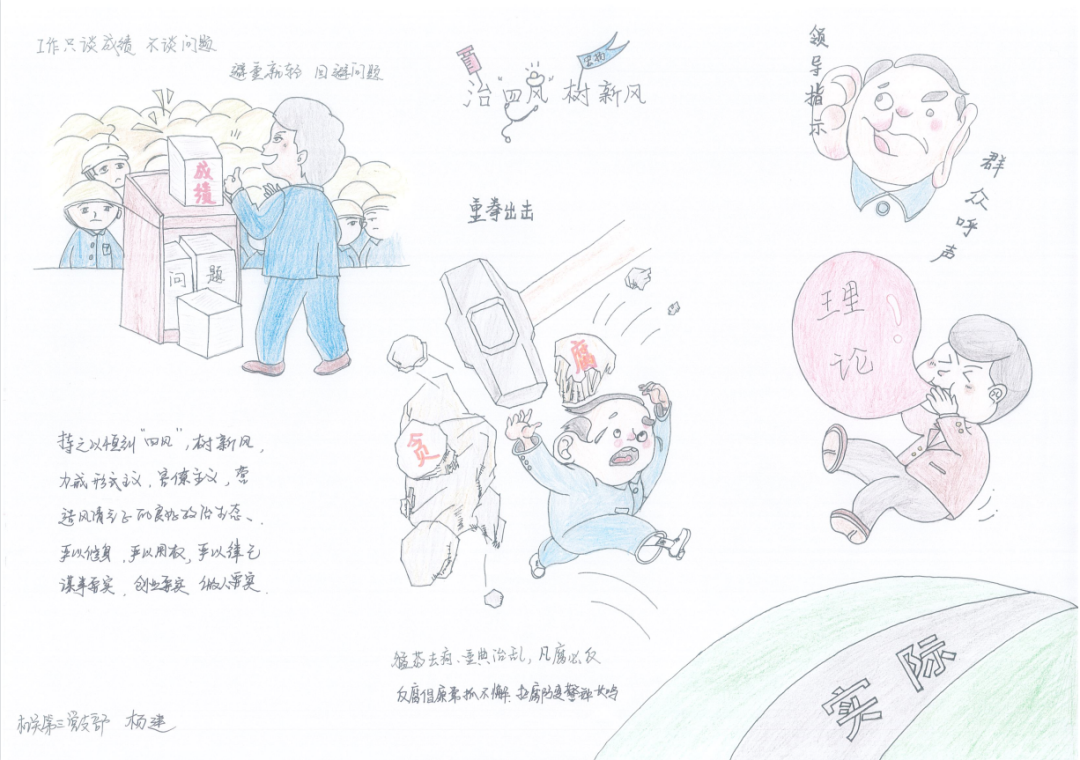 工作只谈成绩 不谈问题
避重就轻 回避问题
成绩
问题
治"四风"树新风
重拳出击
腐
贪
领导指示
群众呼声
理论!
实际
持之以恒纠"四风",树新风,
力戒形式主义、官僚主义,营
造风清气正的良好政治生态、
严以修身,严以用权,严以律己
谋事要实,创业要实 做人要实.
猛药去疴、重典治乱,凡腐必反
反腐倡廉常抓不懈.拒腐防变警钟长鸣
机关第三党支部 杨建